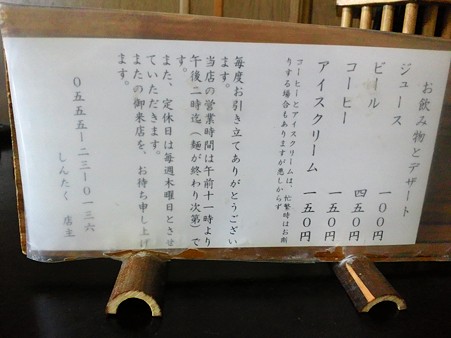 お飲み物とデザート
ジュース 一００円
ビール 四五０円
コーヒー 一五０円
アイスクリーム 一五０円
コーヒーとアイスクリームは、忙繁時はお断
りする場合もありますが悪しからず
毎度お引き立てありがとうござい
ます。
当店の営業時間は午前十一時より
午後二時迄（麺が終わり次第）で
す。
また、定休日は毎週木曜日とさせ
ていただきます。
またの御来店を、お待ち申し上げ
ます。
０５５５ー２３ー０１３６
しんたく 店主